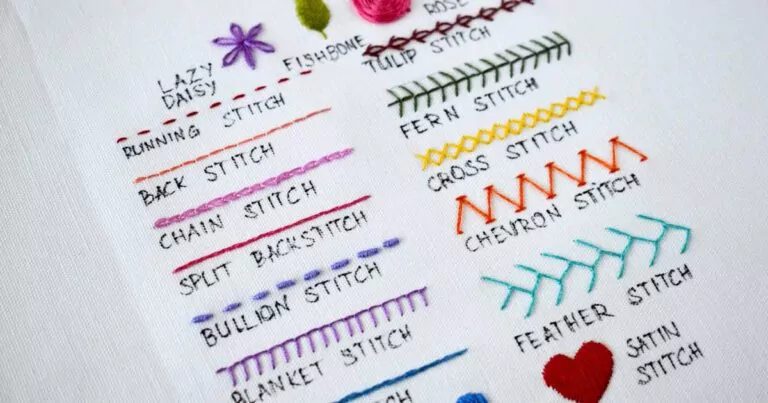 LAZY
DAISY
FISHBONE
ROSE
RUNNING STITCH
BACK STITCH
CHAIN STITCH
SPLIT BACKSTITCH
BULLION STITCH
BLANKET STITCH
TULIP STITCH
FERN STITCH
CROSS STITCH
CHEVRON STITCH
FEATHER STITCH
SATIN
STITCH